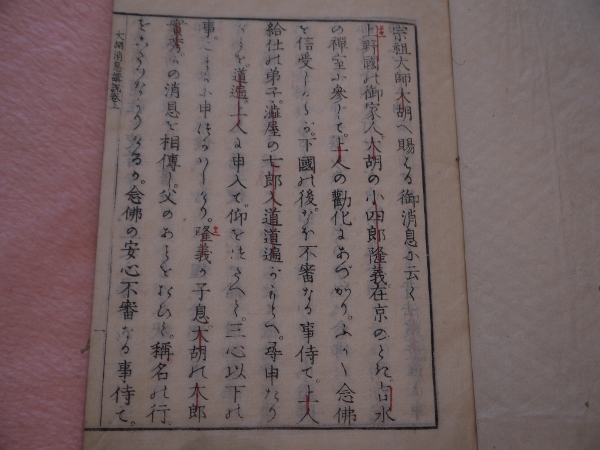 宗祖大師大胡へ賜はる御消息に云く
上野國の御家人大胡の小四郎隆義在京のとき。吉水
の禪室に參じて。上人の勸化にあづかり。ふかく念佛
を信受しけるが。下國の後。なを不審なる事侍て。上人
給仕の弟子。澁屋の七郎入道道遍がもとへ。尋申たり
ければ。道遍。上人に申入て。仰をつたへしこと。三心以下の
事。こまかに申つかはしけり。隆義が子息。大胡の太郎
實秀。の消息を相傳し。父のあとををひて。稱名の行
をこたりなかりけるが。念佛の安心不審なる事侍て。
大胡消息講説卷上
一